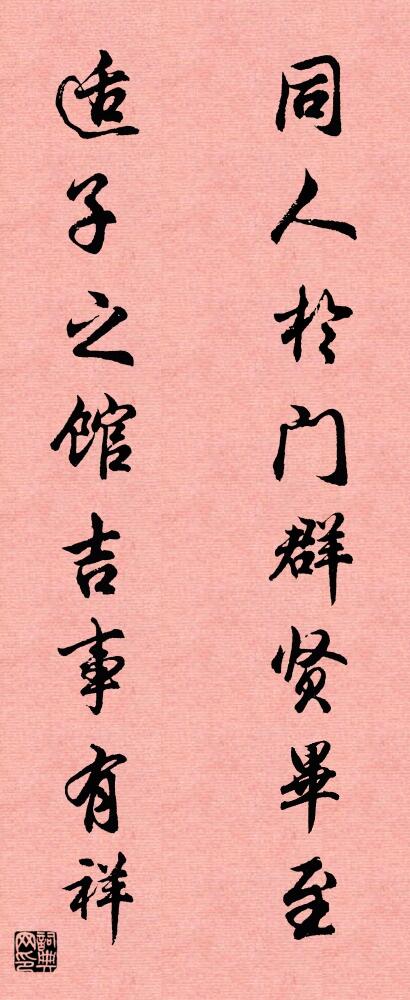 同人於门群贤畢至
适子之馆吉事有祥
詞典网印